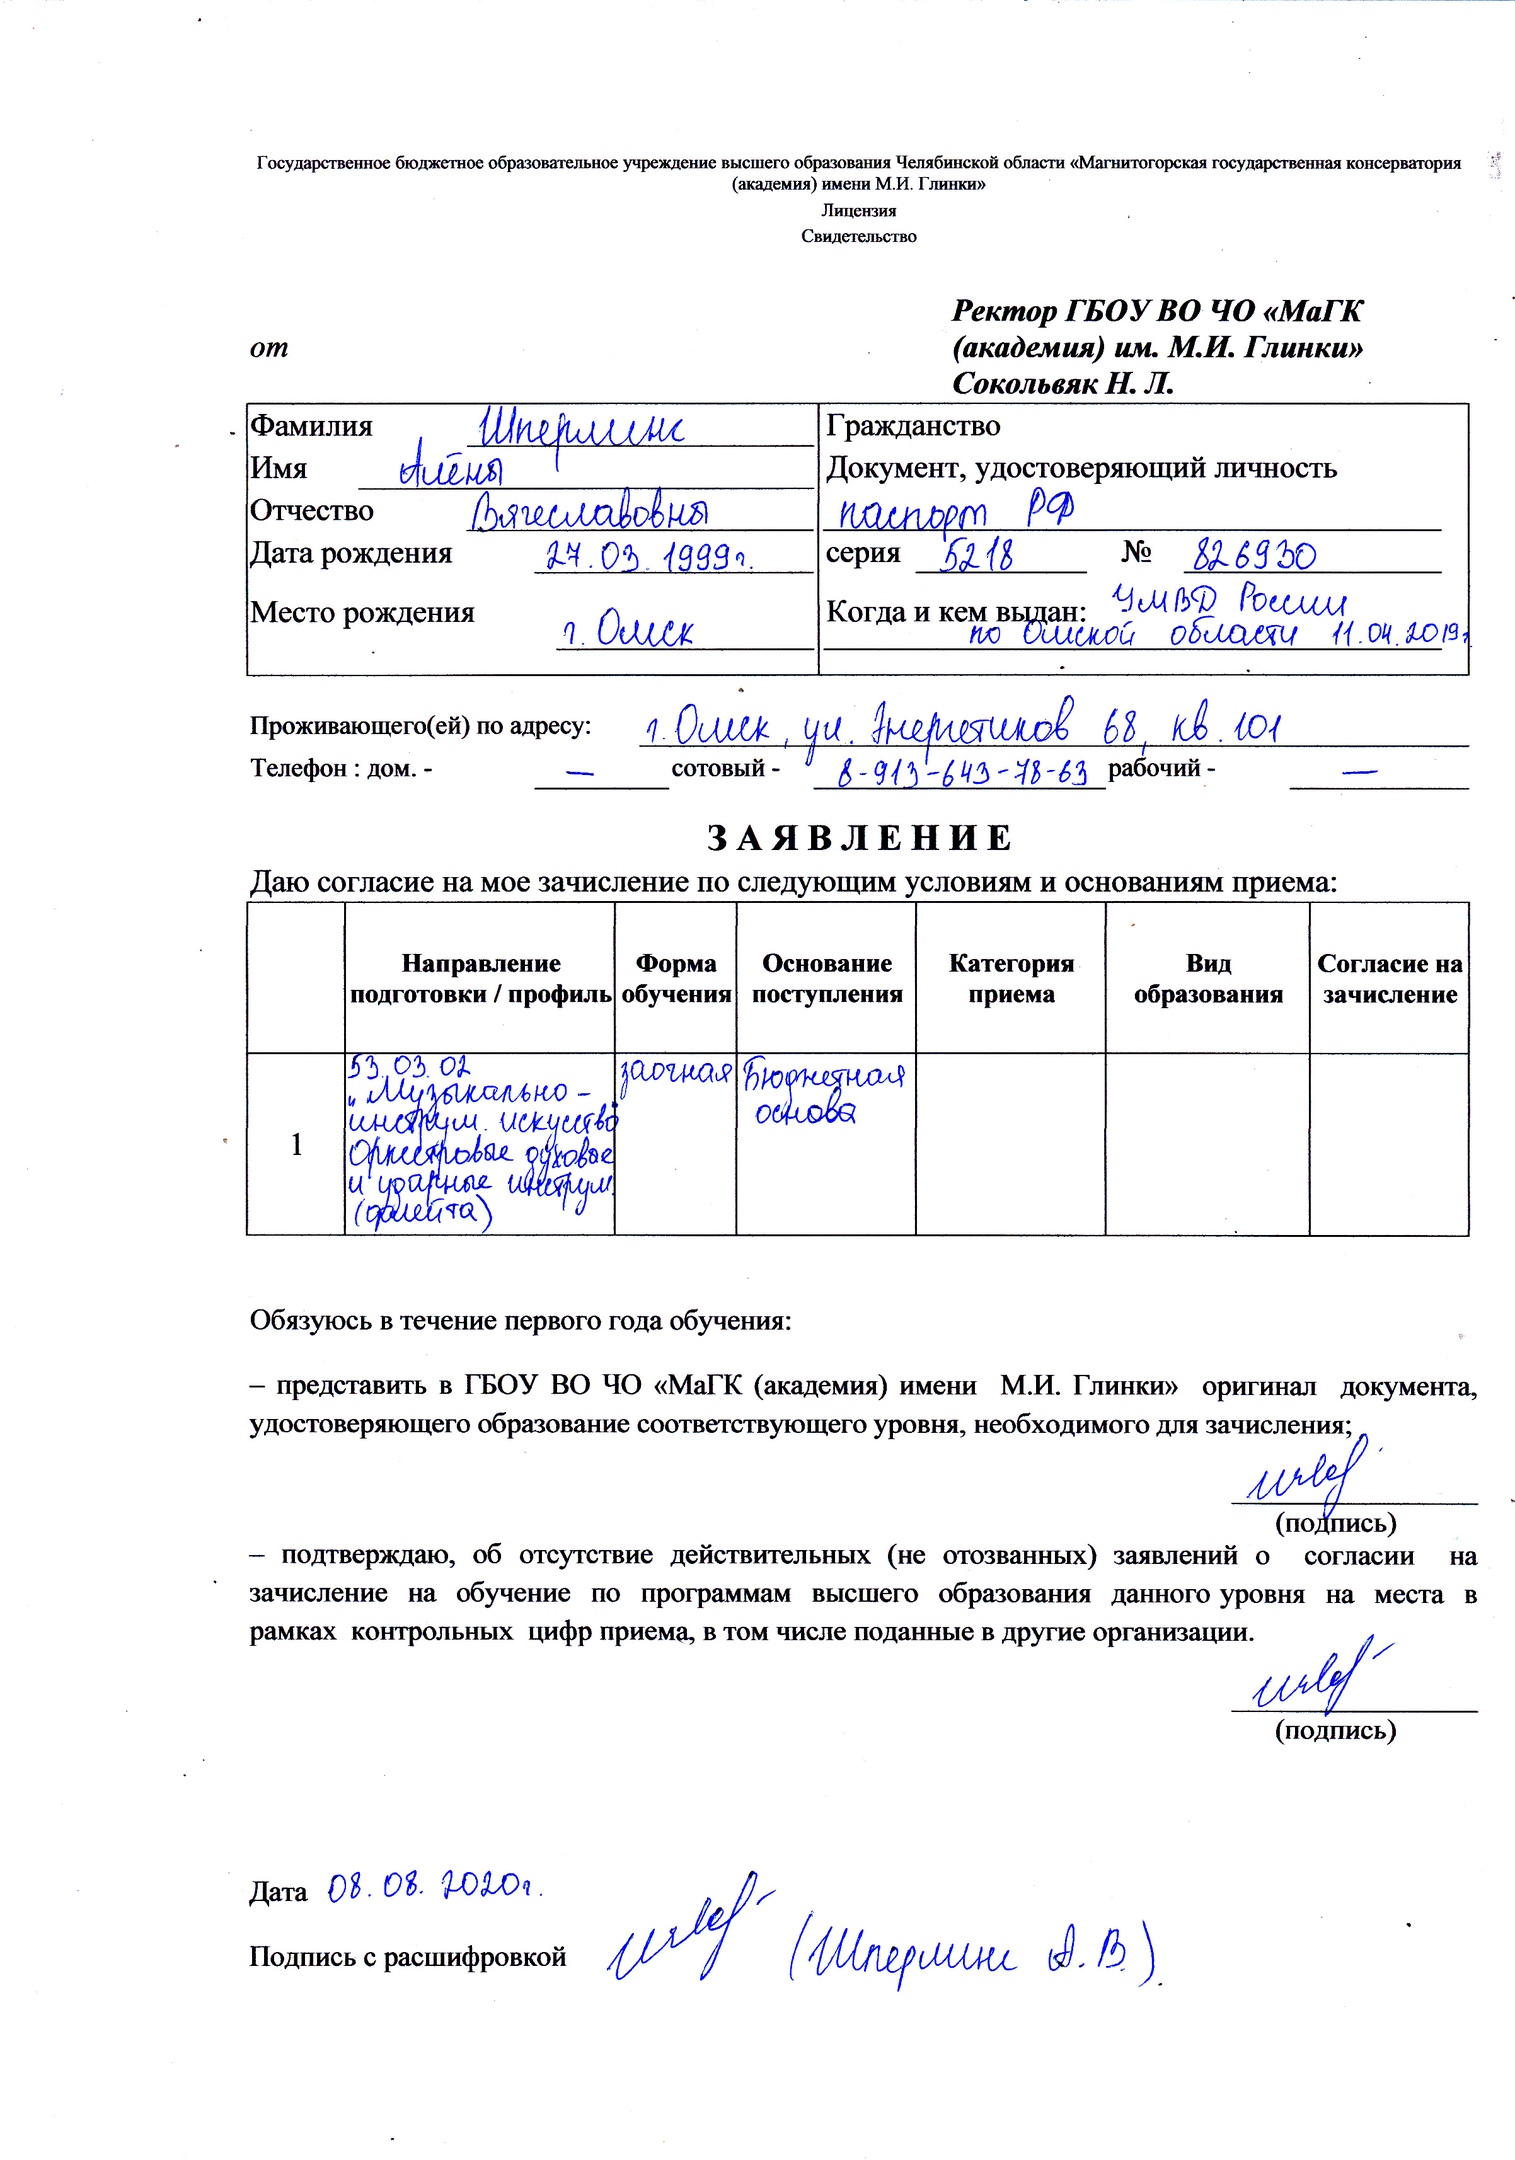 Государственное бюджетное образовательное учреждение высшего образования Челябинской области «Магнитогорская государственная консерватория
(академия) имени М.И. Глинки»
Лицензия
Свидетельство
Ректор ГБОУ ВО ЧО «МаГК
от (академия) им. М.И. Глинки»
Сокольвяк Н. Л.
Фамилия Шперлинг Гражданство
Имя Алёны Документ, удостоверяющий личность
Отчество Вячеславовны паспорт РФ
Дата рождения 27.03.1999г. серия 5218 № 826930
Место рождения г. Омск Когда и кем выдан: УМВД России
по Омской области 11.04.2019г.
Проживающего(ей) по адресу: г. Омск, ул. Энергетиков 68, кв. 101
Телефон : дом. - — сотовый - 8-913-643-78-63 рабочий - —
З А Я В Л Е Н И Е
Даю согласие на мое зачисление по следующим условиям и основаниям приема:
Направление подготовки / профиль
Форма обучения
Основание поступления
Категория приема
Вид образования
Согласие на зачисление
1
53.03.02
„Музыкально -
инструм. искусство
Оркестровые духовые
и ударные инструм.
(флейта)
заочная
Бюджетная
основа
Обязуюсь в течение первого года обучения:
– представить в ГБОУ ВО ЧО «МаГК (академия) имени М.И. Глинки» оригинал документа,
удостоверяющего образование соответствующего уровня, необходимого для зачисления;
(подпись)
– подтверждаю, об отсутствие действительных (не отозванных) заявлений о согласии на
зачисление на обучение по программам высшего образования данного уровня на места в
рамках контрольных цифр приема, в том числе поданные в другие организации.
(подпись)
Дата 08.08.2020г.
Подпись с расшифровкой (Шперлинг А.В.)